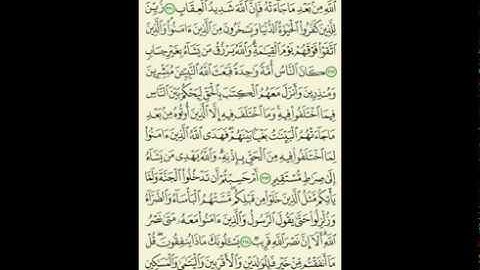 ٱللَّهِ مِنۢ بَعْدِ مَا جَآءَتْهُ فَإِنَّ ٱللَّهَ شَدِيدُ ٱلْعِقَابِ ٢١١ زُيِّنَ
لِلَّذِينَ كَفَرُوا۟ ٱلْحَيَوٰةُ ٱلدُّنْيَا وَيَسْخَرُونَ مِنَ ٱلَّذِينَ ءَامَنُوا۟ وَٱلَّذِينَ
ٱتَّقَوْا۟ فَوْقَهُمْ يَوْمَ ٱلْقِيَٰمَةِ وَٱللَّهُ يَرْزُقُ مَن يَشَآءُ بِغَيْرِ حِسَابٍ
٢١٢ كَانَ ٱلنَّاسُ أُمَّةً وَٰحِدَةً فَبَعَثَ ٱللَّهُ ٱلنَّبِيِّـۧنَ مُبَشِّرِينَ
وَمُنذِرِينَ وَأَنزَلَ مَعَهُمُ ٱلْكِتَٰبَ بِٱلْحَقِّ لِيَحْكُمَ بَيْنَ ٱلنَّاسِ
فِيمَا ٱخْتَلَفُوا۟ فِيهِ وَمَا ٱخْتَلَفَ فِيهِ إِلَّا ٱلَّذِينَ أُوتُوهُ مِنۢ بَعْدِ
مَا جَآءَتْهُمُ ٱلْبَيِّنَٰتُ بَغْيًۢا بَيْنَهُمْ فَهَدَى ٱللَّهُ ٱلَّذِينَ ءَامَنُوا۟
لِمَا ٱخْتَلَفُوا۟ فِيهِ مِنَ ٱلْحَقِّ بِإِذْنِهِۦ وَٱللَّهُ يَهْدِى مَن يَشَآءُ
إِلَىٰ صِرَٰطٍ مُّسْتَقِيمٍ ٢١٣ أَمْ حَسِبْتُمْ أَن تَدْخُلُوا۟ ٱلْجَنَّةَ وَلَمَّا
يَأْتِكُم مَّثَلُ ٱلَّذِينَ خَلَوْا۟ مِن قَبْلِكُم مَّسَّتْهُمُ ٱلْبَأْسَآءُ وَٱلضَّرَّآءُ
وَزُلْزِلُوا۟ حَتَّىٰ يَقُولَ ٱلرَّسُولُ وَٱلَّذِينَ ءَامَنُوا۟ مَعَهُۥ مَتَىٰ نَصْرُ
ٱللَّهِ أَلَآ إِنَّ نَصْرَ ٱللَّهِ قَرِيبٌ ٢١٤ يَسْـَٔلُونَكَ مَاذَا يُنفِقُونَ قُلْ مَآ
أَنفَقْتُم مِّنْ خَيْرٍ فَلِلْوَٰلِدَيْنِ وَٱلْأَقْرَبِينَ وَٱلْيَتَٰمَىٰ وَٱلْمَسَٰكِينِ